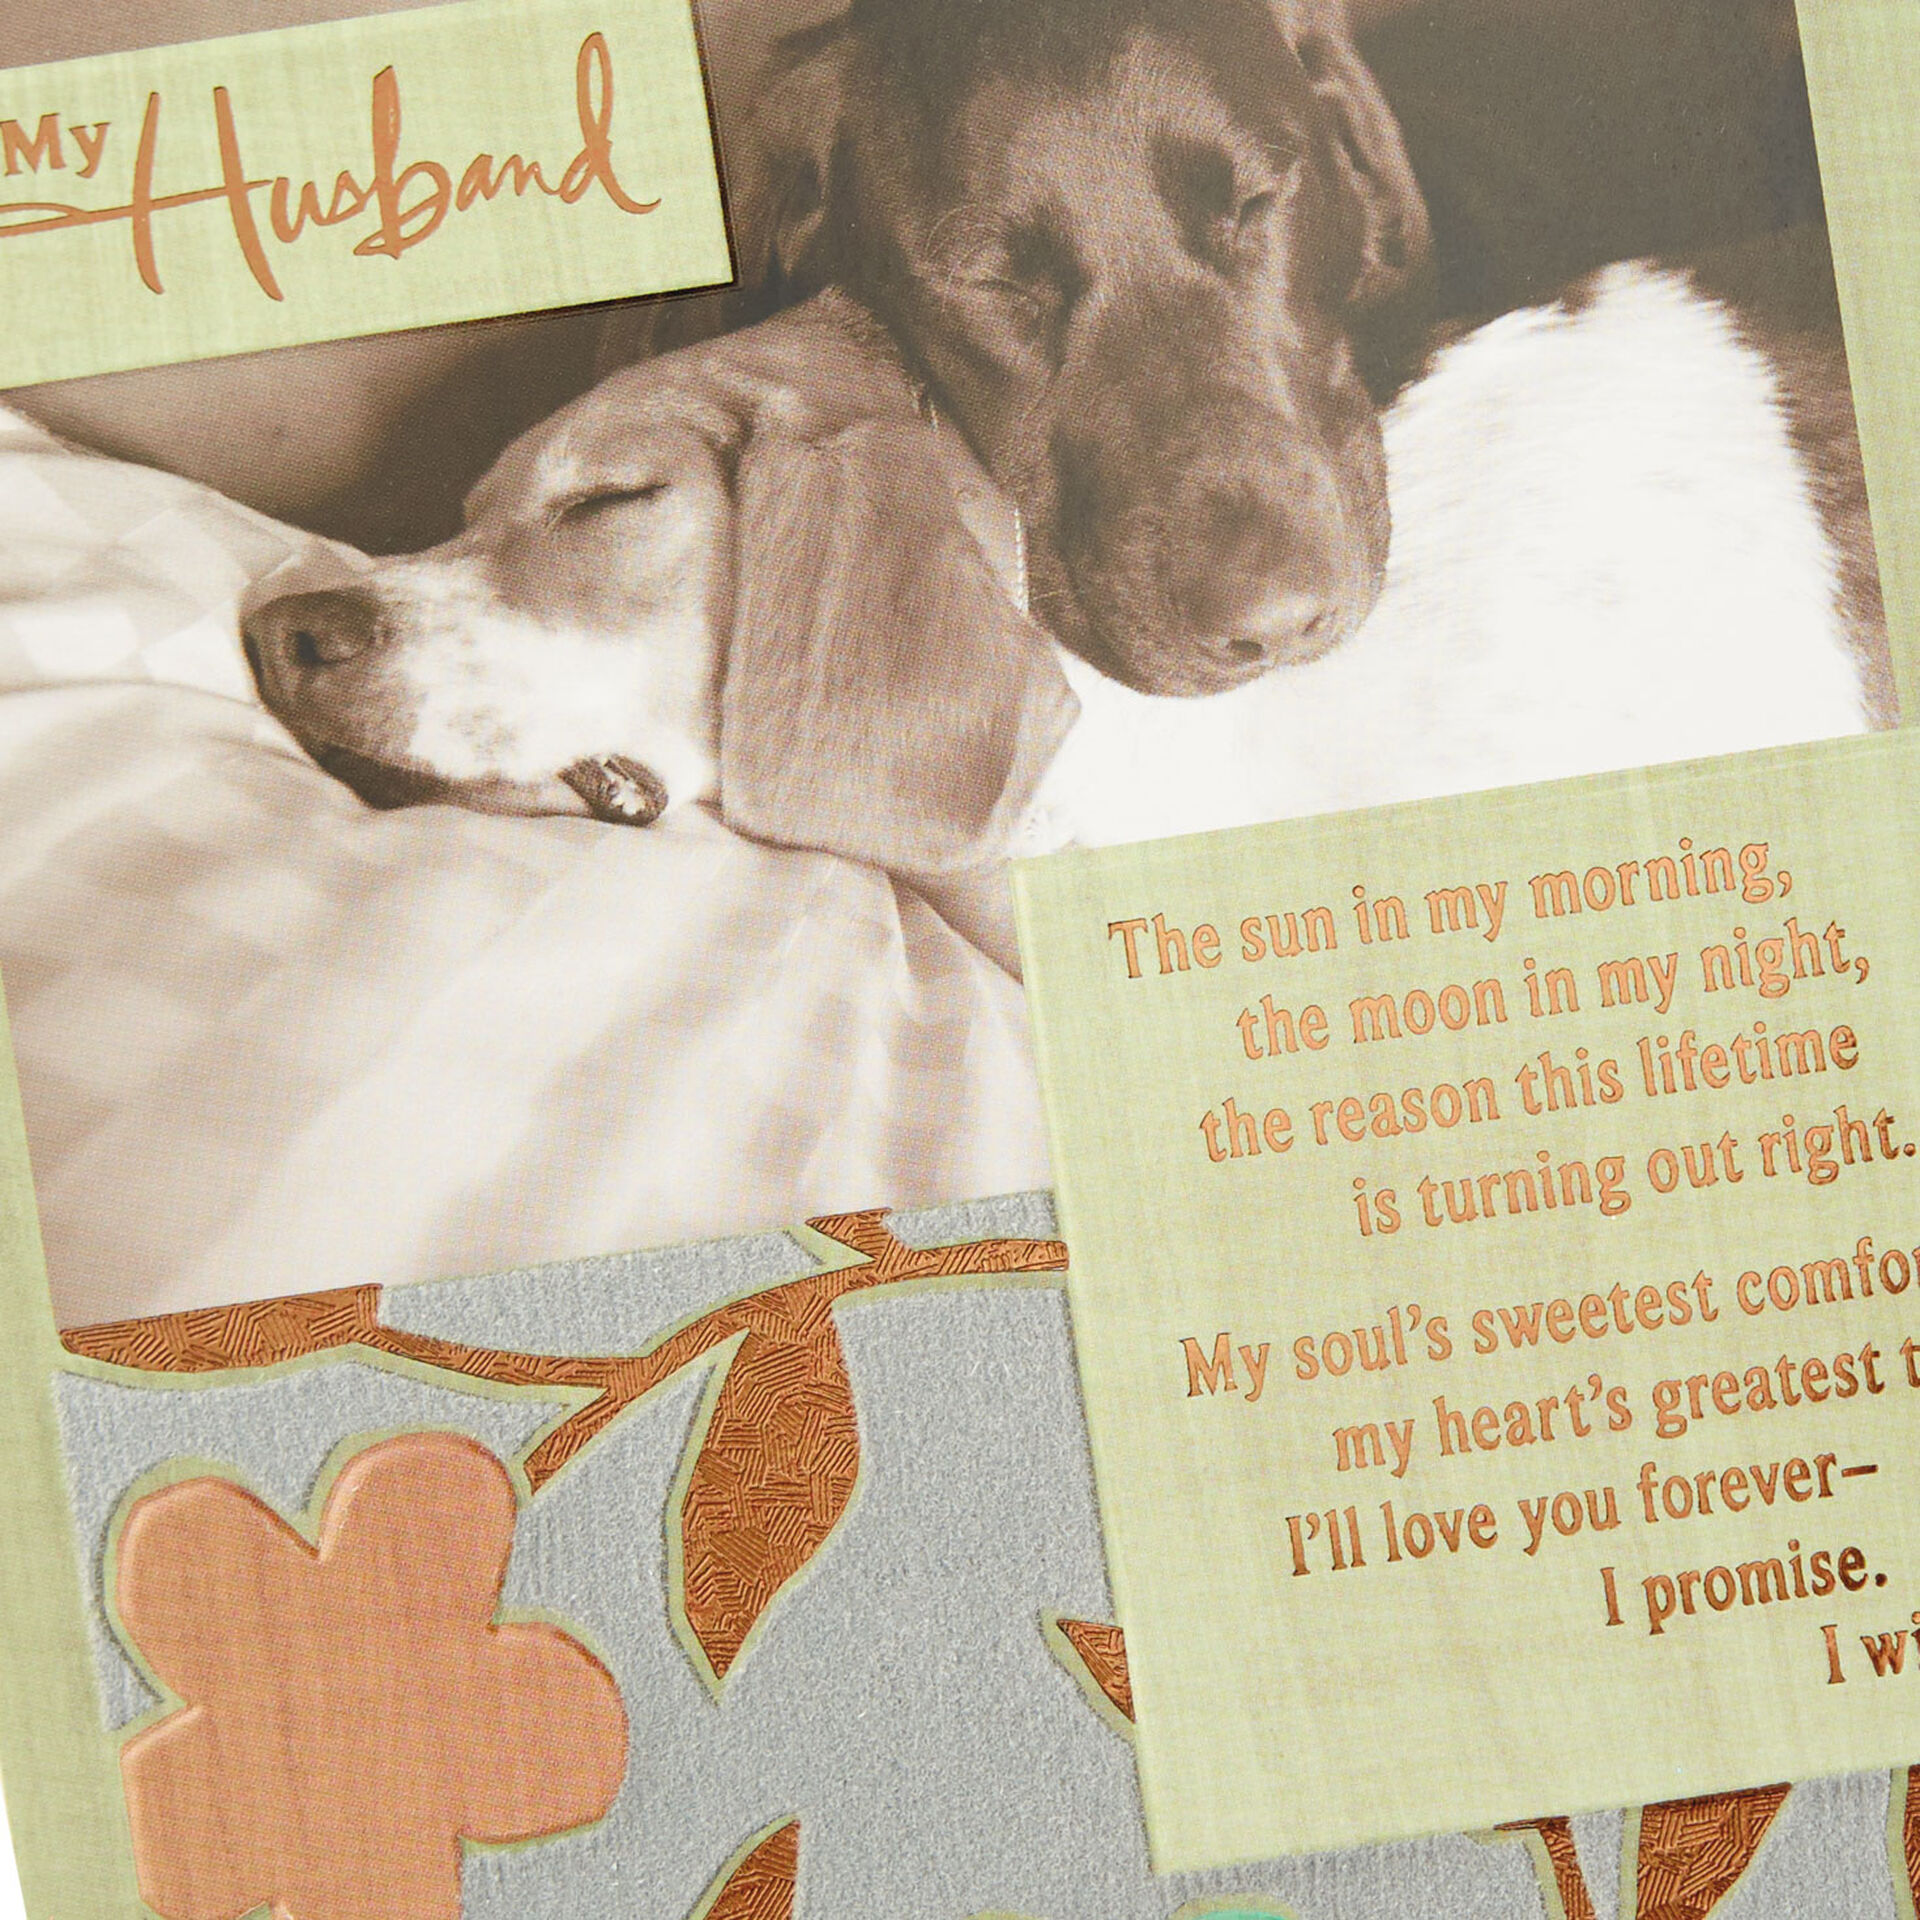 My Husband
The sun in my morning,
the moon in my night,
the reason this lifetime
is turning out right.
My soul's sweetest
my heart's greatest
I'll love you forever–
I promise.
I